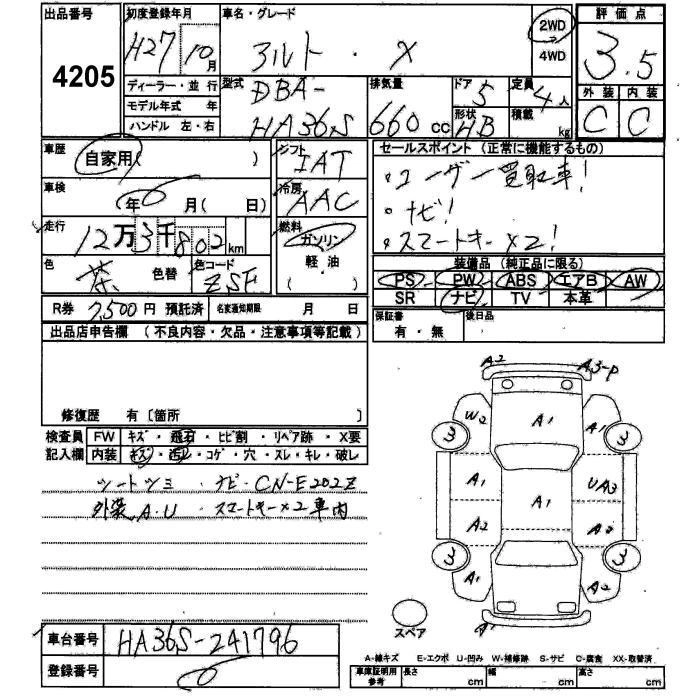 出品番号 初度登録年月 車名・グレード 評価点
4205 H27 10月 アルト・X 2WD 4WD 3.5
ディーラー・並行 型式 排気量 ドア 定員 外装 内装
モデル年式 年 DBA- 5 4人 C C
ハンドル 左・右 HA36S 660cc 形状 HB 積載 kg
車歴 自家用( ) シフト IAT セールスポイント (正常に機能するもの)
車検 年 月( 日) 冷房 AAC ・ユーザー買取車!
走行 12万3千802km 燃料 ガソリン 軽油 ( ) ・ナビ!
色 茶 色替 色コード ZSF ・スマートキー×2!
装備品 (純正品に限る)
PS PW ABS エアB AW
SR ナビ TV 本革
R券 7,500円 預託済 名変通知期限 月 日 保証書 有・無 後日品
出品店申告欄 (不良内容・欠品・注意事項等記載)
修復歴 有〔箇所
検査員 FW キズ・飛石・ヒビ割・リペア跡・X要
記入欄 内装 キズ・汚レ・コゲ・穴・スレ・キレ・破レ
シートシミ・ナビ・CN-E202Z
外装A.U スマートキー×2車内
A2 A3-P
W2 A1 A1
3 3
A1 A1 UA3
A2 A2
3 3
A1 A2
スペア A1
車台番号 HA36S-241796
登録番号
A-線キズ E-エクボ U-凹み W-補修跡 S-サビ C-腐食 XX-取替済
車庫証明用参考 長さ cm 幅 cm 高さ cm